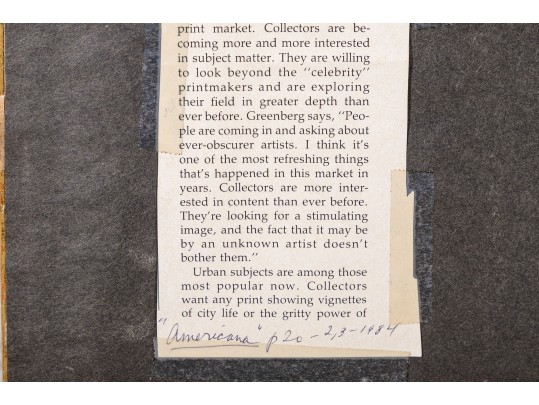 print market. Collectors are be-
coming more and more interested
in subject matter. They are willing
to look beyond the "celebrity"
printmakers and are exploring
their field in greater depth than
ever before. Greenberg says, "Peo-
ple are coming in and asking about
ever-obscurer artists. I think it's
one of the most refreshing things
that's happened in this market in
years. Collectors are more inter-
ested in content than ever before.
They're looking for a stimulating
image, and the fact that it may be
by an unknown artist doesn't
bother them."
Urban subjects are among those
most popular now. Collectors
want any print showing vignettes
of city life or the gritty power of
"Americana" p20 - 2,3-1984